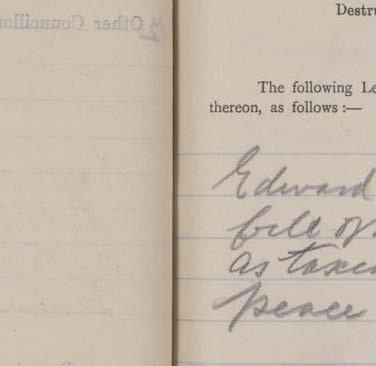 Destru
The following Le
thereon, as follows :—
Edward
bill of
as taxed
peace